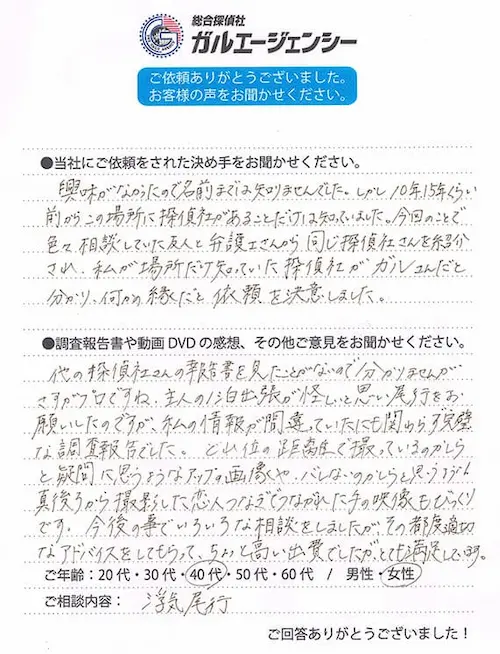 総合探偵社
ガルエージェンシー
ご依頼ありがとうございました。
お客様の声をお聞かせください。
●当社にご依頼をされた決め手をお聞かせください。
興味がなかったので名前までは知りませんでした。しかし10年,15年くらい
前からこの場所に探偵社があることだけは知っていました。今回のことで
色々相談していた友人と弁護士さんから同じ探偵社さんを紹介
され、私が場所だけ知っていた探偵社がガルさんだと
分かり、何かの縁だと依頼を決意しました。
●調査報告書や動画DVDの感想、その他ご意見をお聞かせください。
他の探偵社さんの報告書を見たことがないので分かりませんが
さすがプロですね、主人の泊出張が怪しいと思い尾行をお
願いしたのですが、私の情報が間違っていたにも関わらず完璧
な調査報告でした。どれ位の距離で撮っているのかしら
と疑問に思うようなアップの画像や、バレないのかしらと思うほど
真後ろから撮影した恋人つなぎでつながれた手の映像もびっくり
です。今後の事でいろいろな相談をしましたが、その都度適切
なアドバイスをしてもらって、ちょっと高い出費でしたがとても満足しています。
ご年齢：20代・30代・40代・50代・60代 / 男性・女性
ご相談内容： 浮気尾行
ご回答ありがとうございました！